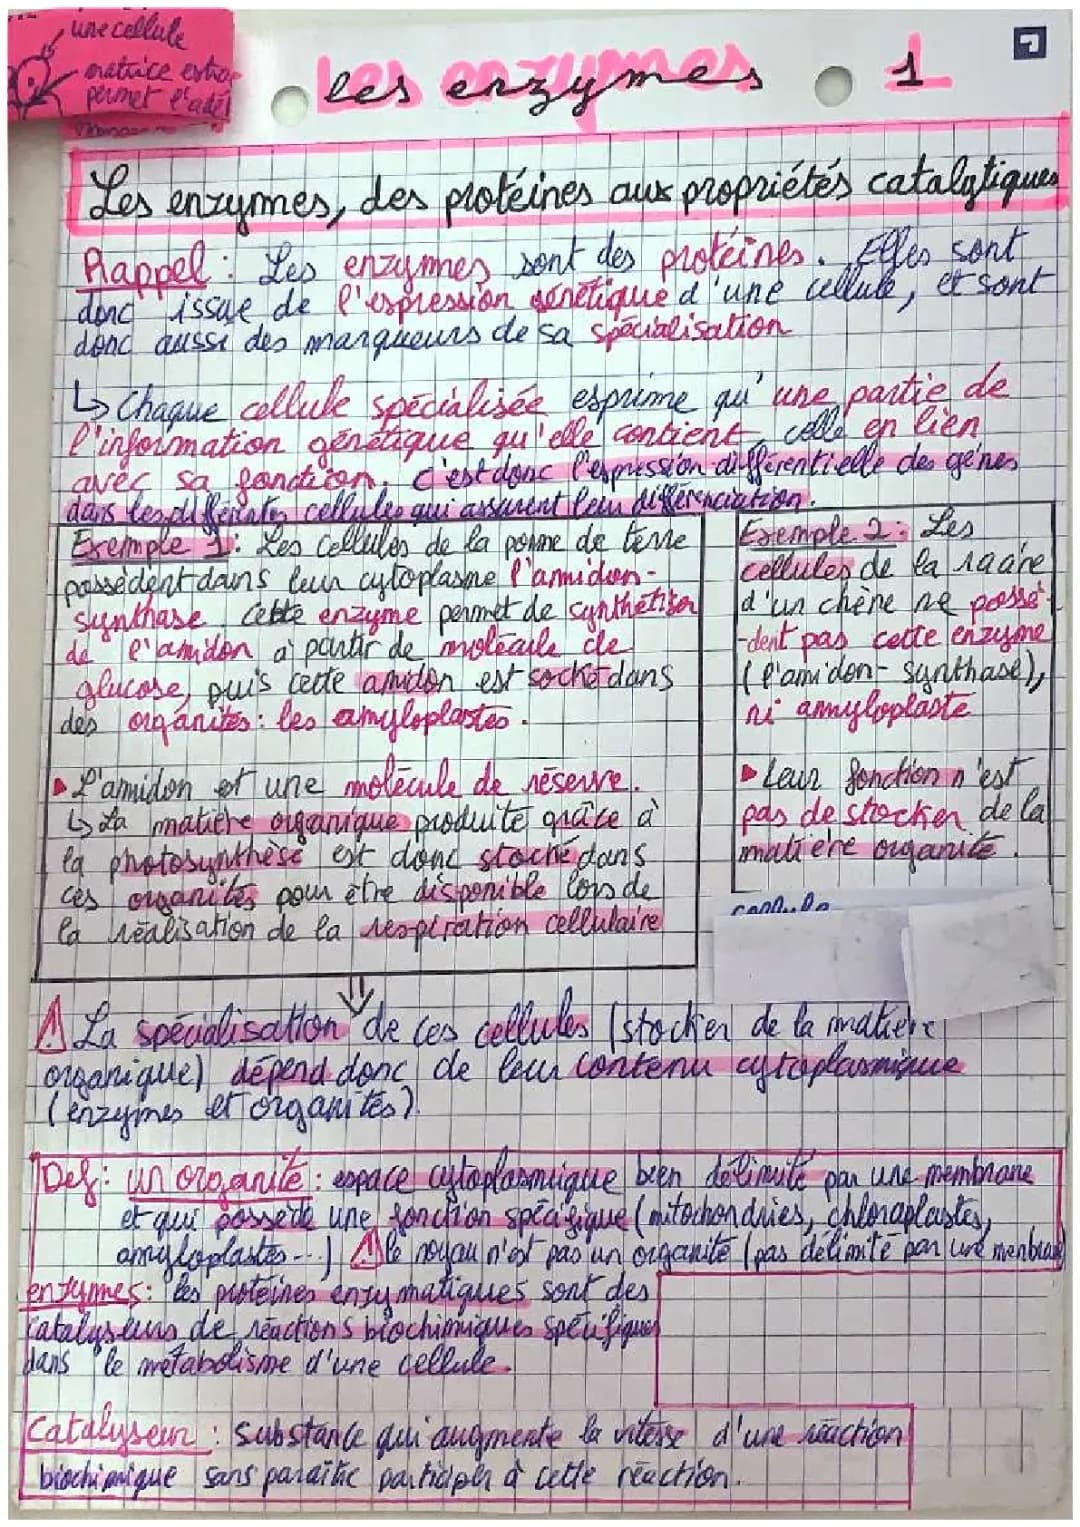 une cellule
matrice extra
permet l'adé
les enzymes 1
Les enzymes, des protéines aux propriétés catalytiques
Rappel : Les enzymes sont des protéines. Elles sont
donc issue de l'expression génétique d'une cellule, et sont
donc aussi des marqueurs de sa spécialisation
↳ Chaque cellule spécialisée esprime qu'une partie de
l'information génétique qu'elle contient, celle en lien
avec sa fonction. C'est donc l'expression différentielle des gènes
dans les différentes cellules qui assurent leur différenciation.
Exemple 1 : Les cellules de la pomme de terre
possèdent dans leur cytoplasme l'amidon-
synthase. Cette enzyme permet de synthétiser
de l'amidon à partir de molécule de
glucose, puis cette amidon est socké dans
des organites : les amyloplastes.
▸ L'amidon est une molécule de réserve.
↳ La matière organique produite grâce à
la photosynthèse est donc stocké dans
ces organites pour être disponible lors de
la réalisation de la respiration cellulaire
Exemple 2 : Les
cellules de la racine
d'un chêne ne possè-
dent pas cette enzyme
(l'amidon-synthase),
ni amyloplaste
▸ Leur fonction n'est
pas de stocker de la
matière organite.
⇓
⚠ La spécialisation de ces cellules (stocker de la matière
organique) dépend donc de leur contenu cytoplasmique
(enzymes et organites).
Def : un organite : espace cytoplasmique bien délimité par une membrane
et qui possède une fonction spécifique (mitochondries, chloroplastes,
amyloplastes ...) ⚠ le noyau n'est pas un organite (pas délimité par une membrane
enzymes : les protéines enzymatiques sont des
catalyseurs de réactions biochimiques spécifiques
dans le métabolisme d'une cellule.
Catalyseur : substance qui augmente la vitesse d'une réaction
biochimique sans paraître participer à cette réaction.